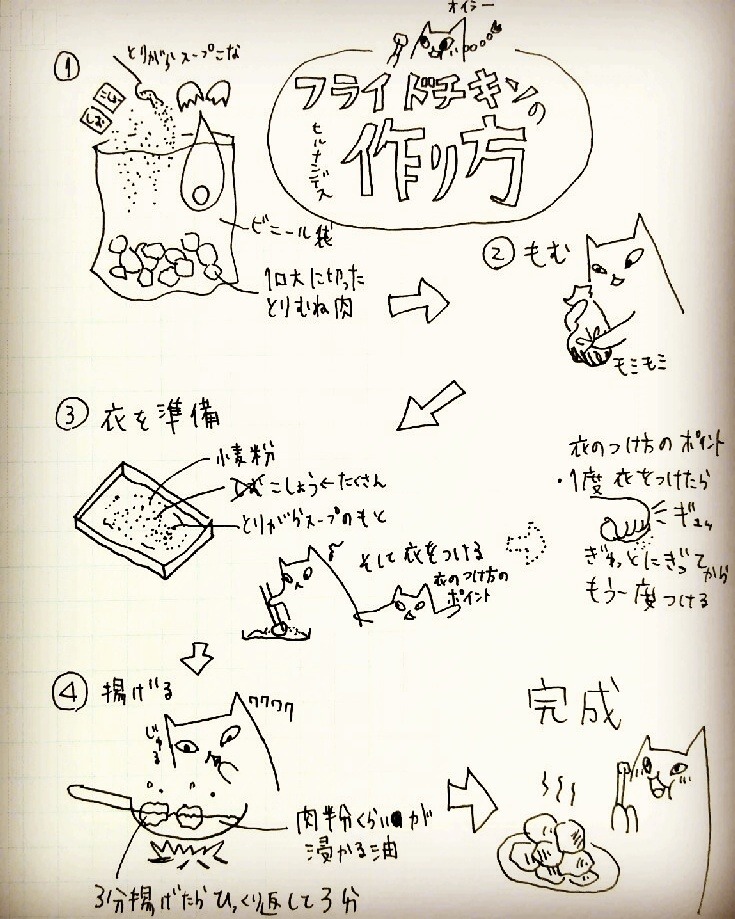 オイラー
フライドチキンの
作り方
ヒルナンデス
①
とりがらスープこな
しお
ビニール袋
1口大に切った
とりむね肉
② もむ
モミモミ
③ 衣を準備
小麦粉
こしょう←たくさん
とりがらスープのもと
そして衣をつける
衣のつけ方の
ポイント
衣のつけ方のポイント
・1度衣をつけたら
ギュッ
ぎゅっとにぎってから
もう一度つける
④ 揚げる
ワクワク
じゅる
肉半分くらいが
浸かる油
3分揚げたらひっくり返して3分
完成